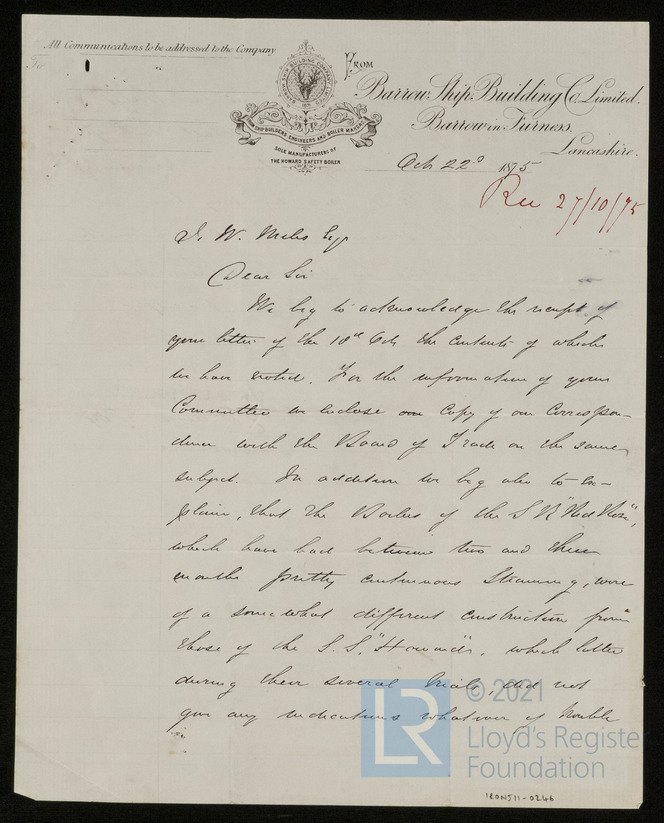 All Communications to be addressed to the Company.
To
BARROW SHIP BUILDING COMPANY LIMITED
SHIP BUILDERS, ENGINEERS AND BOILER MAKERS
SOLE MANUFACTURERS OF
THE HOWARD SAFETY BOILER
FROM
Barrow Ship Building Co. Limited.
Barrow in Furness.
Lancashire.
Oct 22d 1875
Rec 27/10/75
J. W. Miles Esq
Dear Sir
We beg to acknowledge the receipt of
your letter of the 18th Oct the contents of which
we have noted. For the information of your
Committee we enclose copy of our Correspon-
dence with the Board of Trade on the same
subject. In addition we beg also to Ex-
plain, that the Boilers of the S S "Red Rose",
which have had between two and three
months pretty continuous Steaming, were
of a somewhat different construction from
those of the S.S. "Howards", which latter
during their several trials, did not
give any indications whatever of trouble
© 2021
LR
Lloyd's Register
Foundation
IRON511-0246